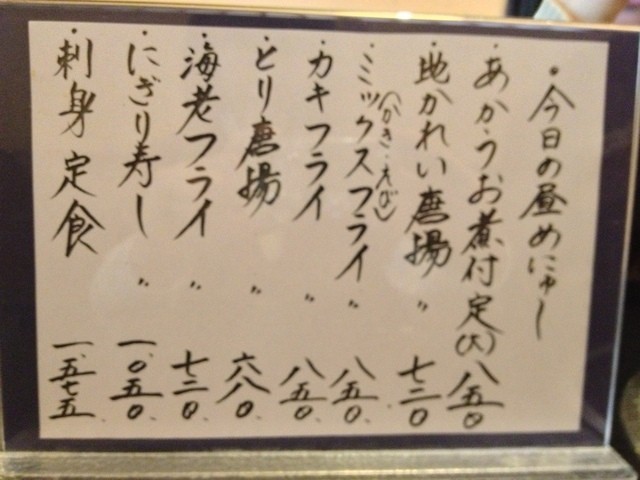 ・今日の昼めにゅー
・あかうお煮付定(大) 八五〇
・地かれい唐揚 〃 七二〇
・ミックスフライ(かき・えび) 〃 八五〇
・カキフライ 〃 八五〇
・とり唐揚 〃 六八〇
・海老フライ 〃 七二〇
・にぎり寿し 〃 一、〇五〇
・刺身定食 一、五七五